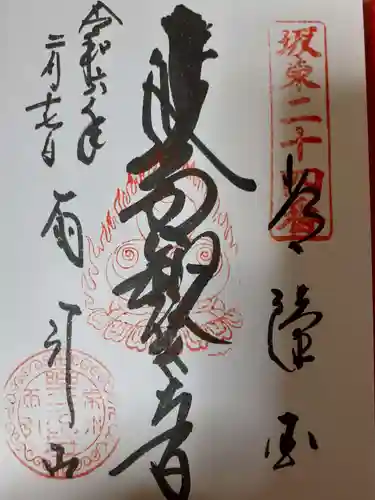 坂東二十四番
常陸国
観世音
雨引山
令和六年
二月十七日